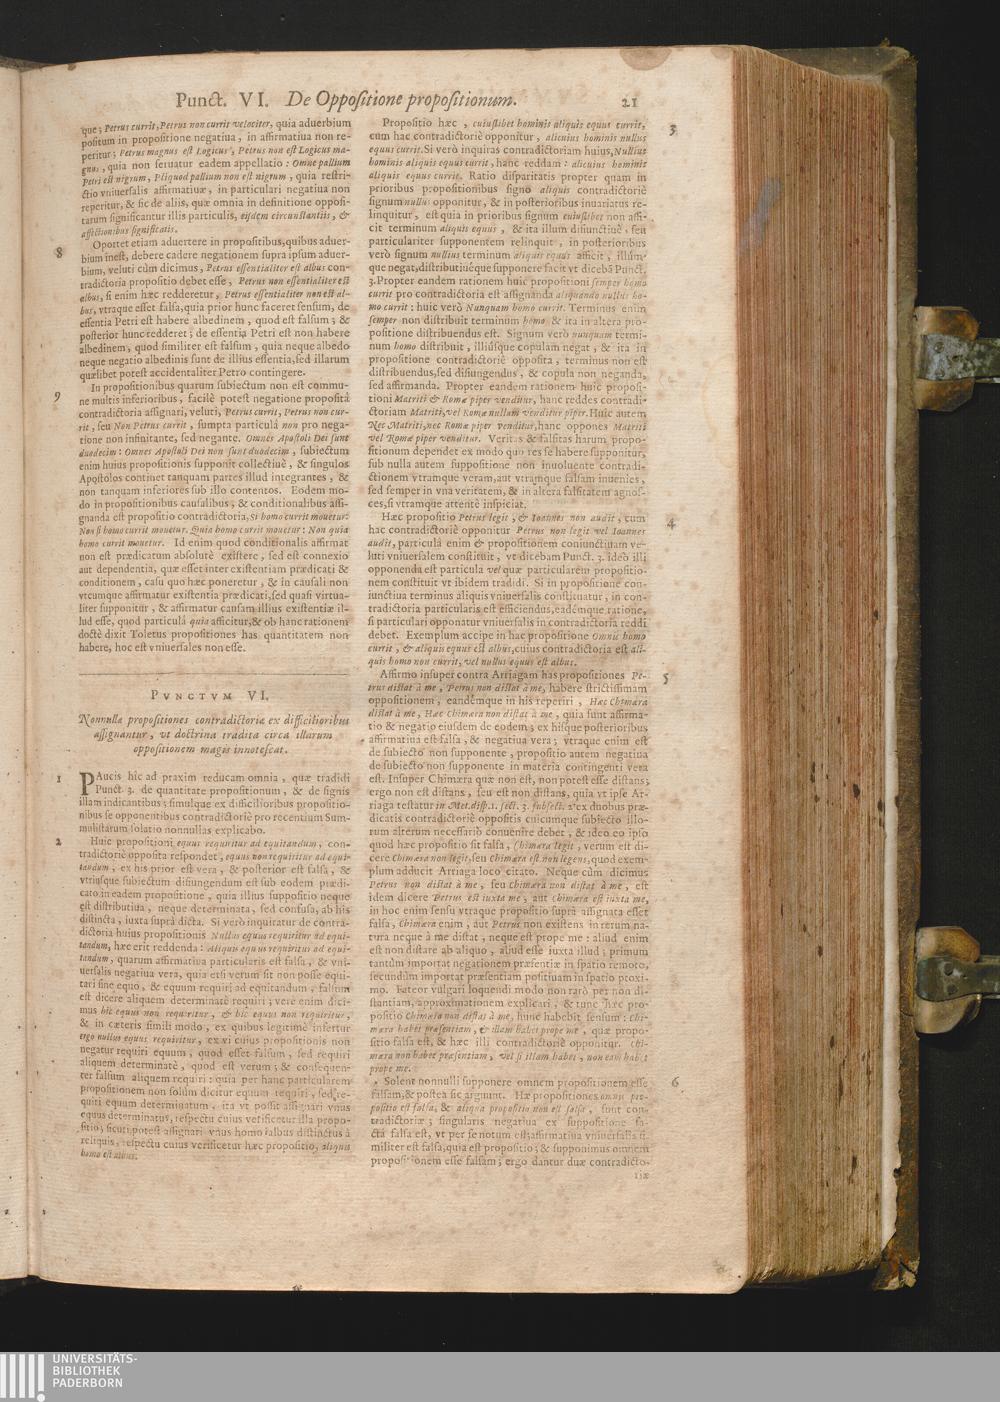 Punct. VI. De Oppositione propositionum. 21
que; Petrus currit, Petrus non currit velociter, quia aduerbium
positum in propositione negatiua, in affirmatiua non re-
peritur; Petrus magnus est Logicus, Petrus non est Logicus ma-
gnus, quia non seruatur eadem appellatio: Omne pallium
Petri est nigrum, Aliquod pallium non est nigrum, quia restri-
ctio vniuersalis affirmatiuæ, in particulari negatiua non
reperitur, & sic de aliis, quæ omnia in definitione opposi-
tarum significantur illis particulis, eisdem circunstantiis, &
affectionibus significatis.
8
Oportet etiam aduertere in propositibus, quibus aduer-
bium inest, debere cadere negationem supra ipsum aduer-
bium, veluti cùm dicimus, Petrus essentialiter est albus con-
tradictoria propositio debet esse, Petrus non essentialiter est
albus, si enim hæc redderetur, Petrus essentialiter non est al-
bus, vtraque esset falsa, quia prior hunc faceret sensum, de
essentia Petri est habere albedinem, quod est falsum; &
posterior hunc redderet; de essentia Petri est non habere
albedinem, quod similiter est falsum, quia neque albedo
neque negatio albedinis sunt de illius essentia, sed illarum
quælibet potest accidentaliter Petro contingere.
9
In propositionibus quarum subiectum non est commu-
ne multis inferioribus, facilè potest negatione propositâ
contradictoria assignari, veluti, Petrus currit, Petrus non cur-
rit, seu Non Petrus currit, sumpta particulâ non pro nega-
tione non infinitante, sed negante. Omnes Apostoli Dei sunt
duodecim: Omnes Apostoli Dei non sunt duodecim, subiectum
enim huius propositionis supponit collectiuè, & singulos
Apostolos continet tanquam partes illud integrantes, &
non tanquam inferiores sub illo contentos. Eodem mo-
do in propositionibus causalibus, & conditionalibus assi-
gnanda est propositio contradictoria, Si homo currit mouetur:
Non si homo currit mouetur. Quia homo currit mouetur: Non quia
homo currit mouetur. Id enim quod conditionalis affirmat
non est prædicatum absolutè existere, sed est connexio
aut dependentia, quæ esset inter existentiam prædicati &
conditionem, casu quo hæc poneretur, & in causali non
vtcumque affirmatur existentia prædicati, sed quasi virtua-
liter supponitur, & affirmatur causam illius existentiæ il-
lud esse, quod particulâ quia afficitur, & ob hanc rationem
doctè dixit Toletus propositiones has quantitatem non
habere, hoc est vniuersales non esse.
PVNCTVM VI.
Nonnullæ propositiones contradictoriæ ex difficilioribus
assignantur, vt doctrina tradita circa illarum
oppositionem magis innotescat.
1
PAucis hîc ad praxim reducam omnia, quæ tradidi
Punct. 3. de quantitate propositionum, & de signis
illam indicantibus; simulque ex difficilioribus propositio-
nibus se opponentibus contradictoriè pro recentium Sum-
mulistarum solatio nonnullas explicabo.
2
Huic propositioni equus requiritur ad equitandum, con-
tradictoriè opposita respondet, equus non requiritur ad equi-
tandum, ex his prior est vera, & posterior est falsa, &
vtriusque subiectum disiungendum est sub eodem prædi-
cato in eadem propositione, quia illius suppositio neque
est distributiua, neque determinata, sed confusa, ab his
distincta, iuxta suprà dicta. Si verò inquiratur de contra-
dictoria huius propositionis Nullus equus requiritur ad equi-
tandum, hæc erit reddenda: Aliquis equus requiritur ad equi-
tandum, quarum affirmatiua particularis est falsa, & vni-
uersalis negatiua vera, quia etsi verum sit non posse equi-
tari sine equo, & equum requiri ad equitandum, falsum
est dicere aliquem determinatè requiri; verè enim dici-
mus hic equus non requiritur, & hic equus non requiritur,
& in cæteris simili modo, ex quibus legitimè infertur
ergo nullus equus requiritur, ex vi cuius propositionis non
negatur requiri equum, quod esset falsum, sed requiri
aliquem determinatè, quod est verum; & consequen-
ter falsum aliquem requiri: quia per hanc particularem
propositionem non solùm dicitur equum requiri, sed re-
quiri equum determinatum, ita vt possit assignari vnus
equus determinatus, respectu cuius verificetur illa propo-
sitio; sicuti potest assignari vnus homo albus distinctus à
reliquis, respectu cuius verificetur hæc propositio, aliquis
homo est albus.
3
Propositio hæc, cuiuslibet hominis aliquis equus currit,
cum hac contradictoriè opponitur, alicuius hominis nullus
equus currit. Si verò inquiras contradictoriam huius, Nullius
hominis aliquis equus currit, hanc reddam: alicuius hominis
aliquis equus currit. Ratio disparitatis propter quam in
prioribus propositionibus signo aliquis contradictoriè
signum nullus opponitur, & in posterioribus inuariatus re-
linquitur, est quia in prioribus signum cuiuslibet non affi-
cit terminum aliquis equus, & ita illum disiunctiuè, seu
particulariter supponentem relinquit, in posterioribus
verò signum nullius terminum aliquis equus afficit, illúm-
que negat, distributiuéque supponere facit vt dicebã Punct.
3. Propter eandem rationem huic propositioni semper homo
currit pro contradictoria est assignanda aliquando nullus ho-
mo currit: huic verò Nunquam homo currit. Terminus enim
semper non distribuit terminum homo & ita in altera pro-
positione distribuendus est. Signum verò nunquam termi-
num homo distribuit, illiúsque copulam negat, & ita in
propositione contradictoriè opposita, terminus non est
distribuendus, sed disiungendus, & copula non neganda,
sed affirmanda. Propter eandem rationem huic proposi-
tioni Matriti & Romæ piper venditur, hanc reddes contradi-
ctoriam Matriti, vel Romæ nullum venditur piper. Huic autem
Nec Matriti, nec Romæ piper venditur, hanc oppones Matriti
vel Romæ piper venditur. Veritas & falsitas harum propo-
sitionum dependet ex modo quo res se habere supponitur,
sub nulla autem suppositione non inuoluente contradi-
ctionem vtramque veram, aut vtramque falsam inuenies,
sed semper in vna veritatem, & in altera falsitatem agnos-
ces, si vtramque attentè inspiciat.
4
Hæc propositio Petrus legit, & Ioannes non audit, cum
hac contradictoriè opponitur Petrus non legit vel Ioannes
audit, particulâ enim & propositionem coniunctiuam ve-
luti vniuersalem constituit, vt dicebam Punct. 3. ideò illi
opponenda est particula vel quæ particularem propositio-
nem constituit vt ibidem tradidi. Si in propositione con-
iunctiua terminus aliquis vniuersalis constituatur, in con-
tradictoria particularis est efficiendus, eadémque ratione,
si particulari opponatur vniuersalis in contradictoria reddi
debet. Exemplum accipe in hac propositione Omnis homo
currit, & aliquis equus est albus, cuius contradictoria est ali-
quis homo non currit, vel nullus equus est albus.
5
Affirmo insuper contra Arriagam has propositiones Pe-
trus distat à me, Petrus non distat à me, habere strictissimam
oppositionem, eandémque in his reperiri, Hæc Chimæra
distat à me, Hæc Chimæra non distat à me, quia sunt affirma-
tio & negatio eiusdem de eodem; ex hisque posterioribus
affirmatiua est falsa, & negatiua vera; vtraque enim est
de subiecto non supponente, propositio autem negatiua
de subiecto non supponente in materia contingenti vera
est. Insuper Chimæra quæ non est, non potest esse distans;
ergo non est distans, seu est non distans, quia vt ipse Ar-
riaga testatur in Met. disp. 1. sect. 3. subsect. 2. ex duobus præ-
dicatis contradictoriè oppositis cuicumque subiecto illo-
rum alterum necessariò conuenire debet, & ideo eo ipso
quod hæc propositio sit falsa, Chimæra legit, verum est di-
cere Chimæra non legit, seu Chimæra est non legens, quod exem-
plum adducit Arriaga loco citato. Neque cùm dicimus
Petrus non distat à me, seu Chimæra non distat à me, est
idem dicere Petrus est iuxta me, aut chimæra est iuxta me,
in hoc enim sensu vtraque propositio suprà assignata esset
falsa, Chimæra enim, aut Petrus non existens in rerum na-
tura neque à me distat, neque est prope me: aliud enim
est non distare ab aliquo, aliud esse iuxta illud; primum
tantùm importat negationem præsentiæ in spatio remoto,
secundum importat præsentiam positiuam in spatio proxi-
mo. Fateor vulgari loquendi modo non rarò per non di-
stantiam, approximationem explicari, & tunc hæc pro-
positio Chimæra non distat à me, hunc habebit sensum: Chi-
mæra habet præsentiam, & illam habet prope me, quæ propo-
sitio falsa est, & hæc illi contradictoriè opponitur. Chi-
mæra non habet præsentiam, vel si illam habet, non eam habet
prope me.
6
Solent nonnulli supponere omnem propositionem esse
falsam, & postea sic arguunt. Hæ propositiones omnis pro-
positio est falsa, & aliqua propositio non est falsa, sunt con-
tradictoriæ; singularis negatiua ex suppositione fa-
cta falsa est, vt per se notum est; affirmatiua vniuersalis si-
militer est falsa, quia est propositio; & supponimus omnem
propositionem esse falsam; ergo dantur duæ contradicto-
riæ
UNIVERSITÄTS-
BIBLIOTHEK
PADERBORN